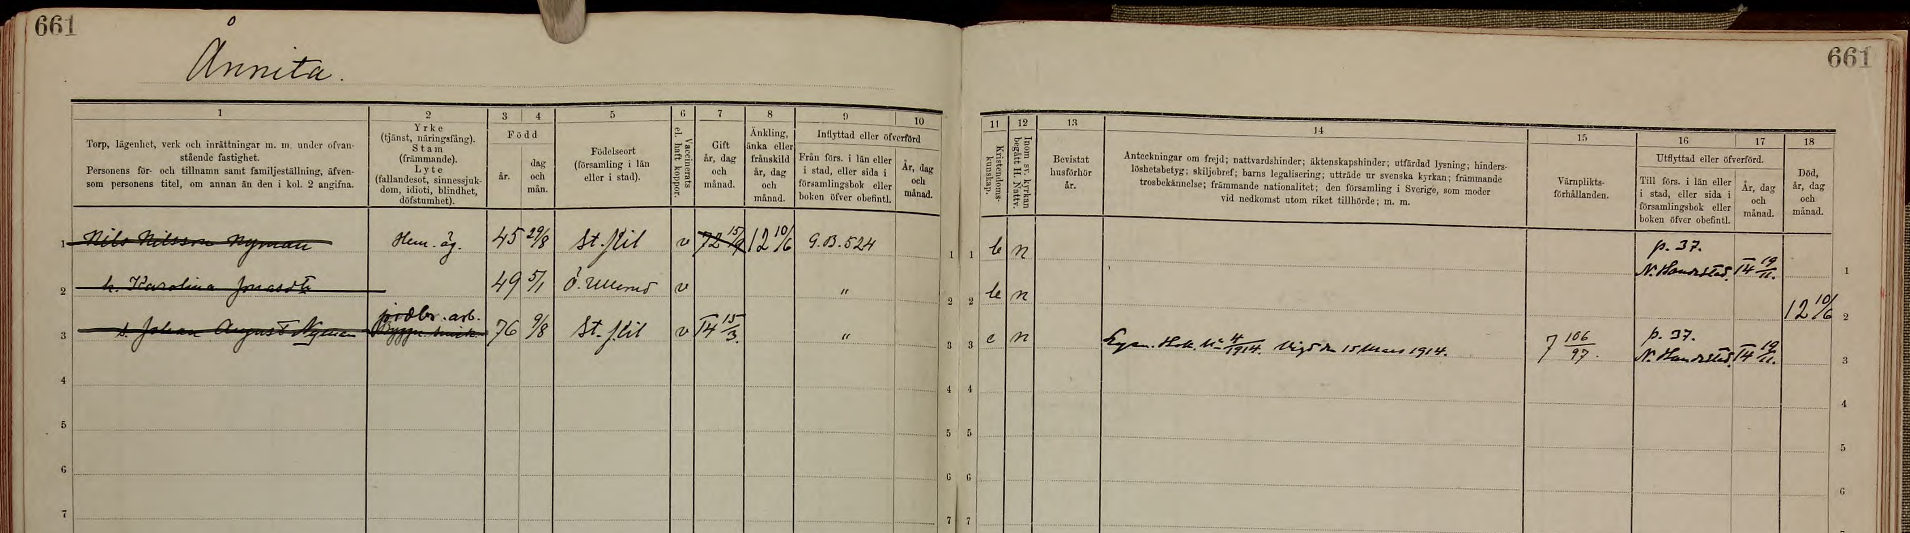 661
Ånnita.
661
1
2
3 4
5
6
7
8
9
10
11
12
13
14
15
16
17
18
Torp, lägenhet, verk och inrättningar m. m. under ofvan-
stående fastighet.
Personens för- och tillnamn samt familjeställning, äfven-
som personens titel, om annan än den i kol. 2 angifna.
Yrke
(tjänst, näringsfång).
Stam
(främmande).
Lyte
(fallandesot, sinnessjuk-
dom, idioti, blindhet,
döfstumhet).
Född
år.
dag
och
mån.
Födelseort
(församling i län
eller i stad).
Vaccinerats
el. haft koppor.
Gift
år, dag
och
månad.
Änkling,
änka eller
frånskild
år, dag
och
månad.
Inflyttad eller öfverförd
Från förs. i län eller
i stad, eller sida i
församlingsbok eller
boken öfver obefintl.
År, dag
och
månad.
Kristendoms-
kunskap.
Inom sv. kyrkan
begått H. Nattv.
Bevistat
husförhör
år.
Anteckningar om frejd; nattvardshinder; äktenskapshinder; utfärdad lysning; hinders-
löshetsbetyg; skiljobref; barns legalisering; utträde ur svenska kyrkan; främmande
trosbekännelse; främmande nationalitet; den församling i Sverige, som moder
vid nedkomst utom riket tillhörde; m. m.
Värnplikts-
förhållanden.
Utflyttad eller öfverförd.
Till förs. i län eller
i stad, eller sida i
församlingsbok eller
boken öfver obefintl.
År, dag
och
månad.
Död,
år, dag
och
månad.
1 Nils Nilsson Nyman Hem. äg. 45 29/8 St. Kil v 72 15/9 12 10/6 G.B. 524 1
1 b n p. 37. N. Handstad. 14 19/11. 1
2 h. Karolina Jonasdt 49 5/1 Ö. Ullerud v " 2
2 b n 12 10/6 2
3 s. Johan August Nyman jordbr. arb. 76 9/8 St. Kil v 14 15/3. " 3
3 c n 4/1914. Vigd den 15 Mars 1914. 7 106/97. p. 37. N. Handstad. 14 19/11. 3
4 4 4 4
5 5 5 5
6 6 6 6
7 7 7